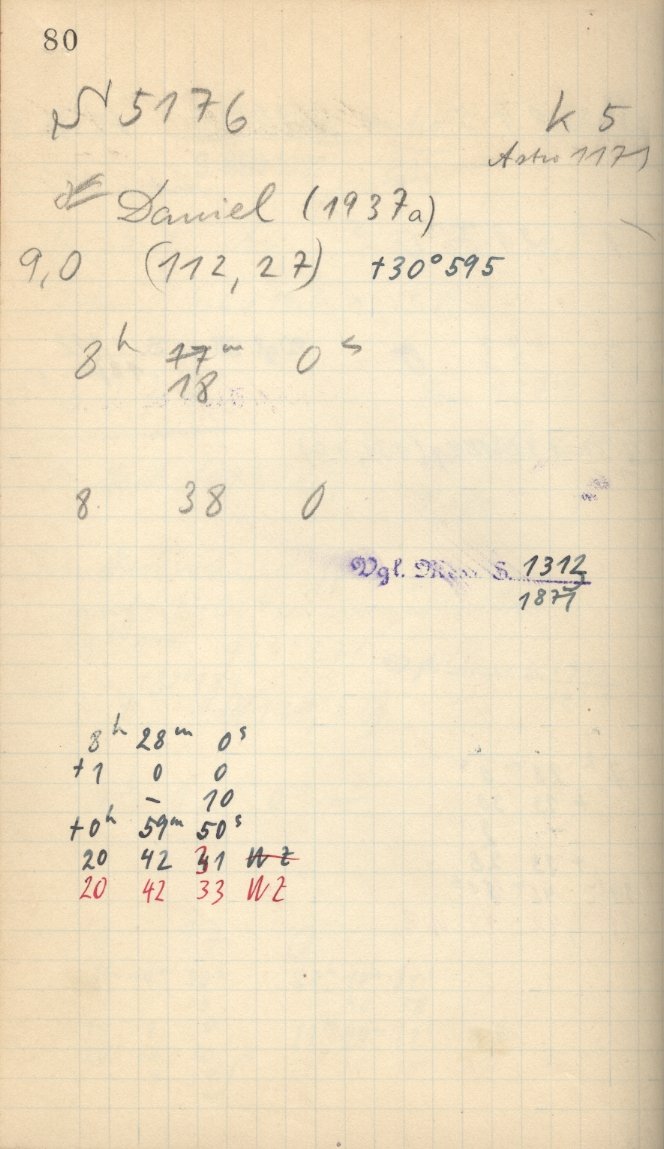 80
N 5176
K 5
Astro 1171
Daniel (1937a)
9,0 (112, 27) +30°595
8h 17m 0s
18
8 38 0
Vgl. S. 1312
1871
8h 28m 0s
+1 0 0
- 10
+0h 59m 50s
20 42 31 WZ
20 42 33 WZ